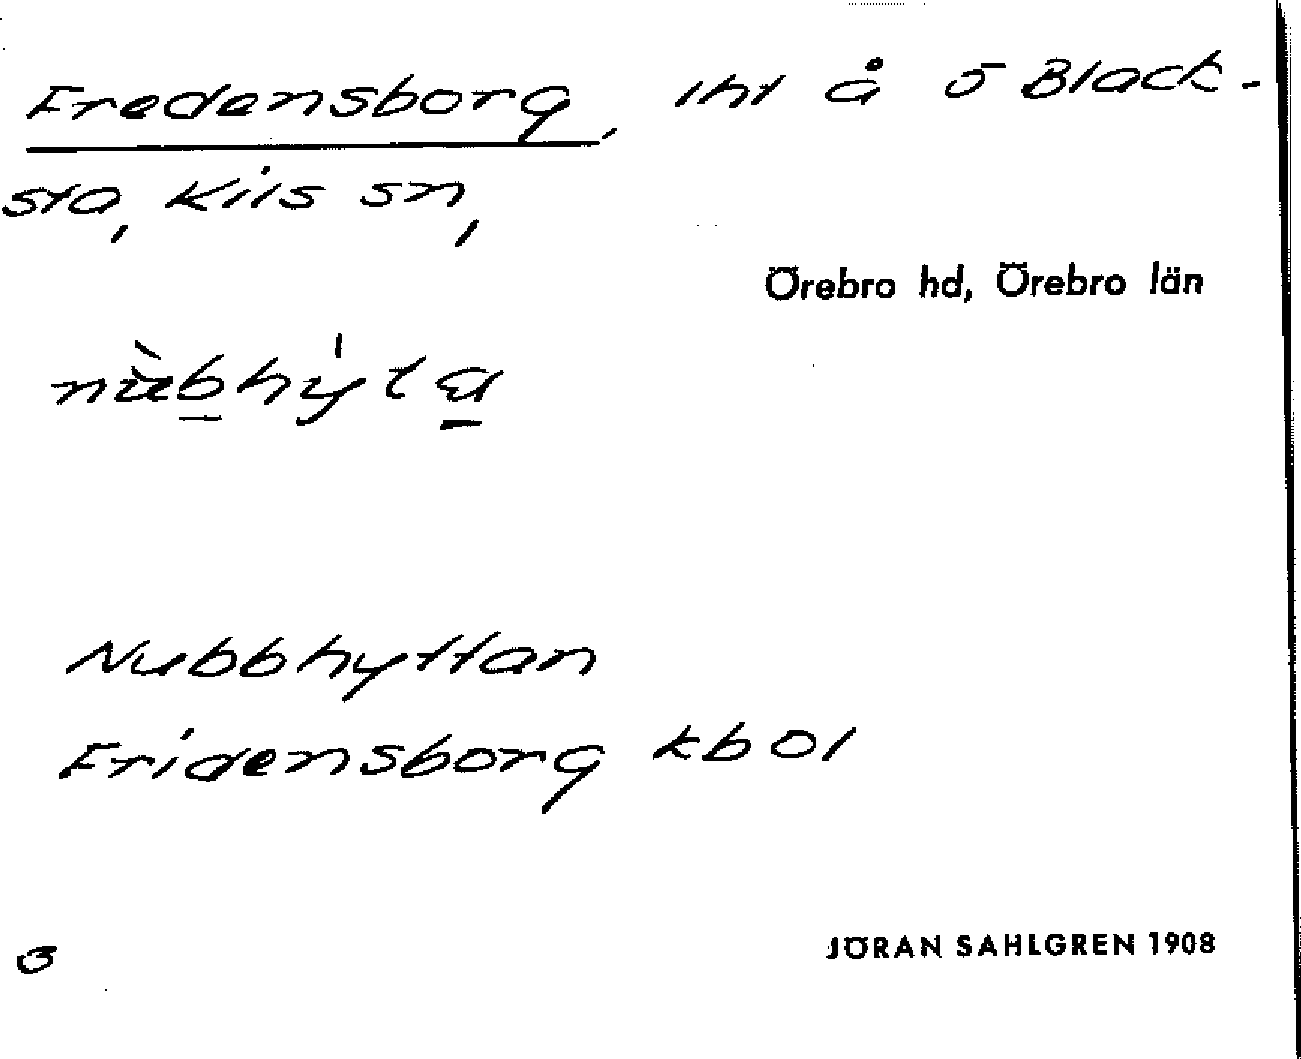 Fredensborg, lht å Ö Black-
sta, Kils sn,
Örebro hd, Örebro län
Nubbhyttan
Fridensborg kbol
JÖRAN SAHLGREN 1908